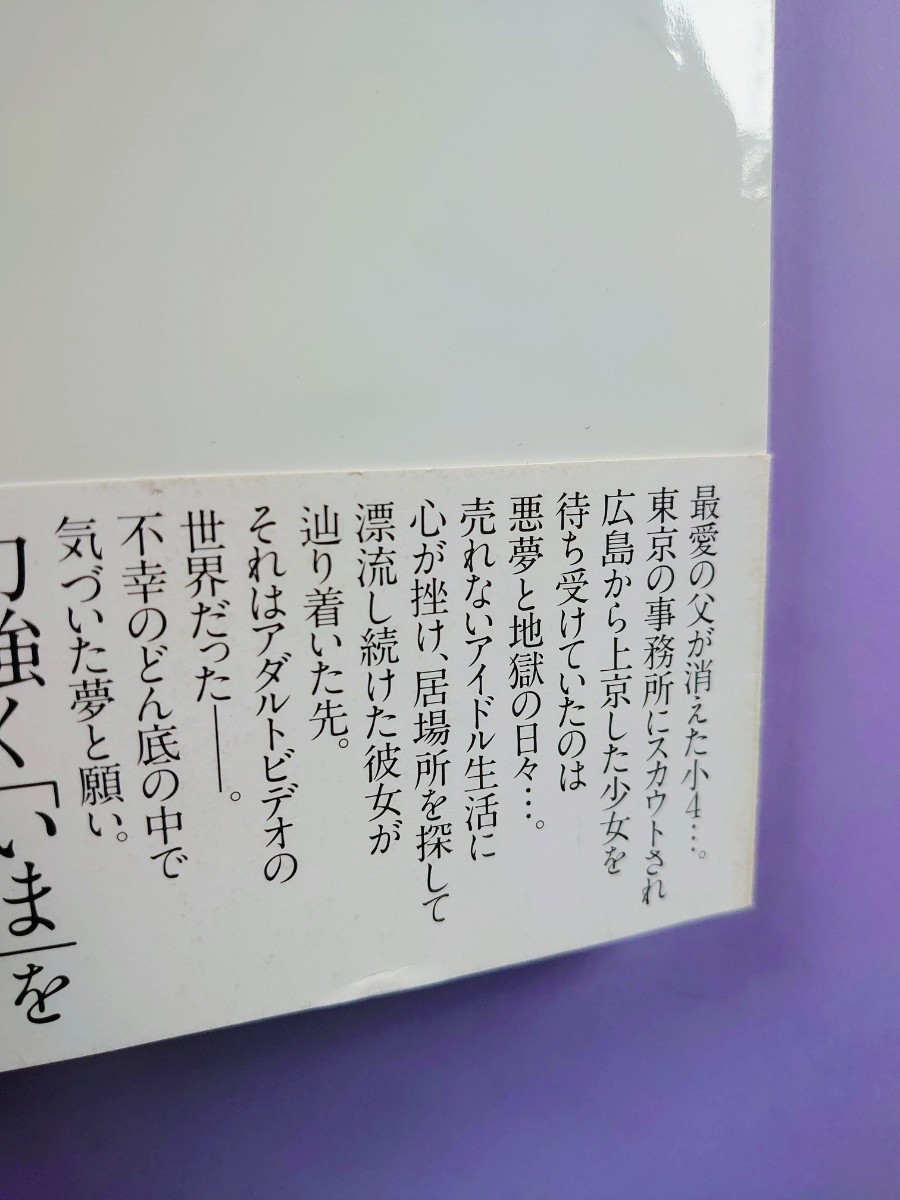 最愛の父が消えた小4…。
東京の事務所にスカウトされ
広島から上京した少女を
待ち受けていたのは
悪夢と地獄の日々…。
売れないアイドル生活に
心が挫け、居場所を探して
漂流し続けた彼女が
辿り着いた先。
それはアダルトビデオの
世界だった――。
不幸のどん底の中で
気づいた夢と願い。
力強く「いま」を